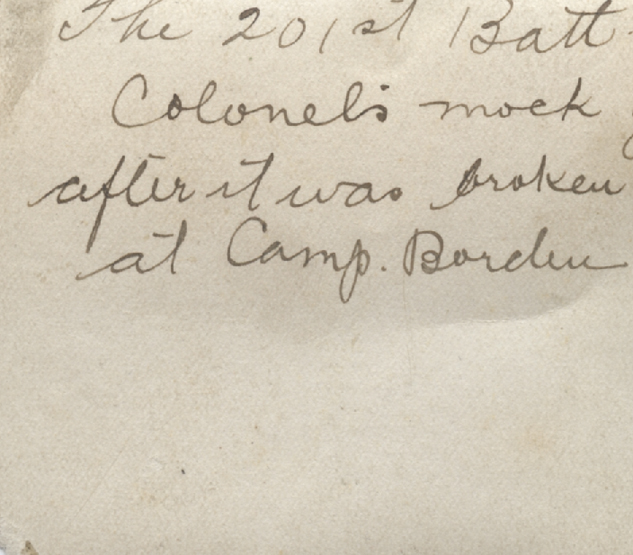 The 201st Batt
Colonel's mock
after it was broken
at Camp. Borden